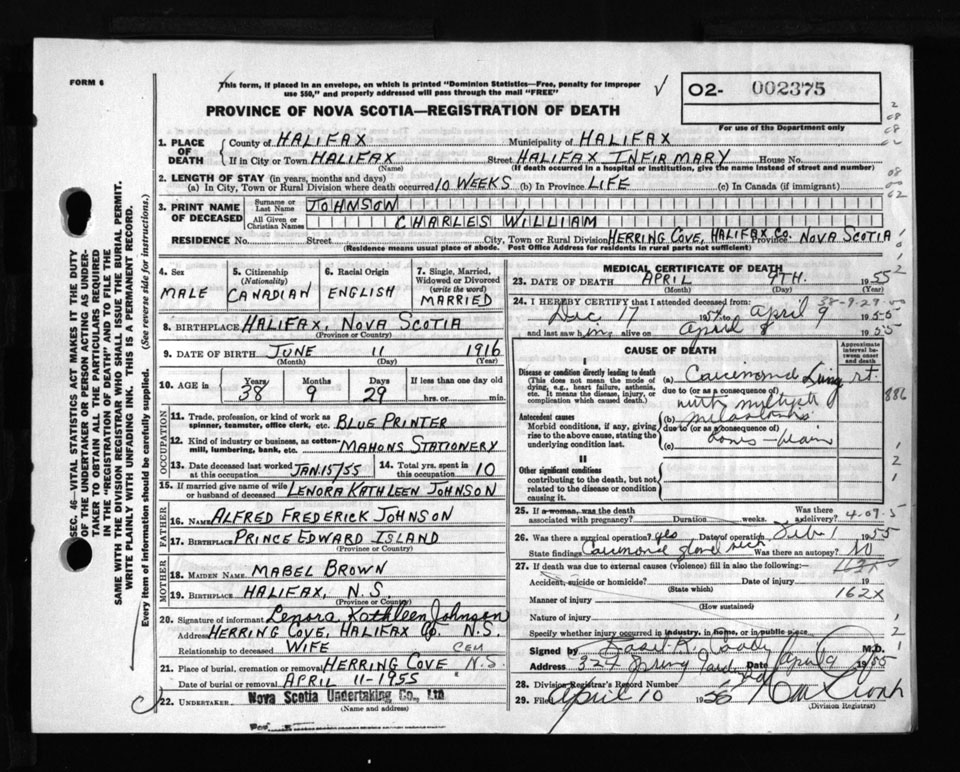 FORM 6
This form, if placed in an envelope, on which is printed "Dominion Statistics—Free, penalty for improper
use $50," and properly addressed will pass through the mail "FREE"
O2- 002375
PROVINCE OF NOVA SCOTIA—REGISTRATION OF DEATH
For use of the Department only
SEC. 46—VITAL STATISTICS ACT MAKES IT THE DUTY
OF THE UNDERTAKER OR PERSON ACTING AS UNDER-
TAKER TO OBTAIN ALL THE PARTICULARS REQUIRED
IN THE "REGISTRATION OF DEATH" AND TO FILE THE
SAME WITH THE DIVISION REGISTRAR WHO SHALL ISSUE THE BURIAL PERMIT.
WRITE PLAINLY WITH UNFADING INK. THIS IS A PERMANENT RECORD.
Every item of information should be carefully supplied. (See reverse side for instructions.)
1. PLACE OF DEATH
County of HALIFAX Municipality of HALIFAX
If in City or Town HALIFAX Street HALIFAX INFIRMARY House No.
(Name) (If death occurred in a hospital or institution, give the name instead of street and number)
2. LENGTH OF STAY (in years, months and days)
(a) In City, Town or Rural Division where death occurred 10 WEEKS (b) In Province LIFE (c) In Canada (if immigrant)
3. PRINT NAME OF DECEASED
Surname or Last Name JOHNSON
All Given or Christian Names CHARLES WILLIAM
RESIDENCE No. Street City, Town or Rural Division HERRING COVE, HALIFAX CO. Province NOVA SCOTIA
(Residence means usual place of abode. Post Office Address for residents in rural parts not sufficient)
4. Sex MALE
5. Citizenship (Nationality) CANADIAN
6. Racial Origin ENGLISH
7. Single, Married, Widowed or Divorced (write the word) MARRIED
8. BIRTHPLACE HALIFAX, NOVA SCOTIA
(Province or Country)
9. DATE OF BIRTH JUNE 11 1916
(Month) (Day) (Year)
10. AGE in Years 38 Months 9 Days 29 If less than one day old hrs. or min.
OCCUPATION
11. Trade, profession, or kind of work as spinner, teamster, office clerk, etc. BLUE PRINTER
12. Kind of industry or business, as cotton-mill, lumbering, bank, etc. MAHONS STATIONERY
13. Date deceased last worked at this occupation JAN.15/55 14. Total yrs. spent in this occupation 10
15. If married give name of wife or husband of deceased LENORA KATHLEEN JOHNSON
FATHER
16. NAME ALFRED FREDERICK JOHNSON
17. BIRTHPLACE PRINCE EDWARD ISLAND
(Province or Country)
MOTHER
18. MAIDEN NAME MABEL BROWN
19. BIRTHPLACE HALIFAX, N.S.
(Province or Country)
20. Signature of informant Lenora Kathleen Johnson
Address HERRING COVE, HALIFAX Co. N.S.
Relationship to deceased WIFE
CEM
21. Place of burial, cremation or removal HERRING COVE N.S.
Date of burial or removal APRIL 11-1955
22. UNDERTAKER Nova Scotia Undertaking Co., Ltd.
(Name and address)
MEDICAL CERTIFICATE OF DEATH
23. DATE OF DEATH APRIL 9TH. 1955
(Month) (Day) (Year)
38-9-29
24. I HEREBY CERTIFY that I attended deceased from
Dec 17 1954 to April 9 1955
and last saw him alive on April 8 1955
CAUSE OF DEATH
Approximate interval between onset and death
I
Disease or condition directly leading to death
(This does not mean the mode of dying, e.g., heart failure, asthenia, etc. It means the disease, injury, or complication which caused death.)
(a) Carcinoma Lung rt.
due to (or as a consequence of)
Antecedent causes
Morbid conditions, if any, giving rise to the above cause, stating the underlying condition last.
(b) with multiple metastasis
due to (or as a consequence of)
(c) bones - brain
II
Other significant conditions
contributing to the death, but not related to the disease or condition causing it.
886
25. If a woman, was the death associated with pregnancy? Duration weeks. Was there a delivery?
26. Was there a surgical operation? yes Date of operation Feb 1 1955
State findings Carcinoma Was there an autopsy? No
27. If death was due to external causes (violence) fill in also the following:—
Accident, suicide or homicide? Date of injury 19
(State which)
162X
Manner of injury
(How sustained)
Nature of injury
Specify whether injury occurred in industry, in home, or in public place
Signed by M.D.
Address 324 Spring Date April 9 1955
28. Division Registrar's Record Number
29. Filed April 10 19
(Division Registrar)